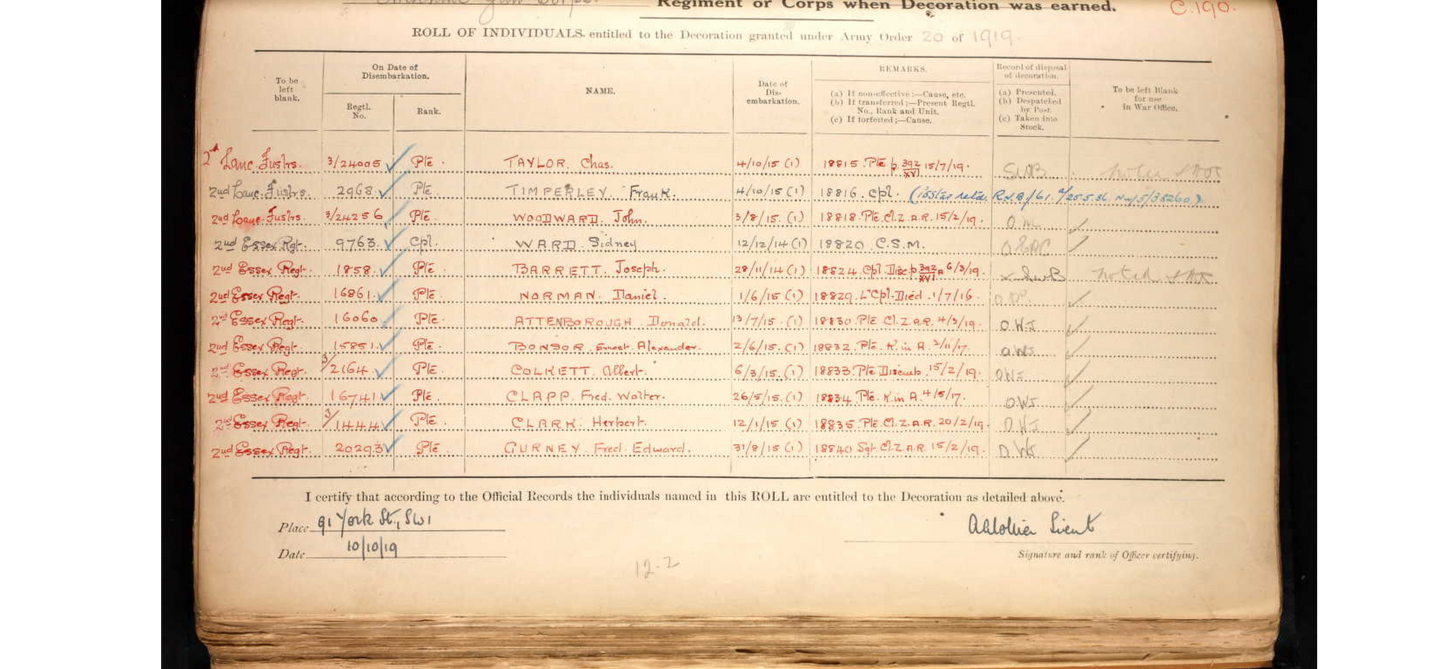 Regiment or Corps when Decoration was earned. C.190.
ROLL OF INDIVIDUALS. entitled to the Decoration granted under Army Order 20 of 1919.
To be left blank. On Date of Disembarkation. Regtl. No. Rank. NAME. Date of Dis-embarkation. REMARKS. (a) If non-effective:—Cause, etc. (b) If transferred:—Present Regtl. No., Rank and Unit. (c) If forfeited:—Cause. Record of disposal of decoration. (a) Presented. (b) Despatched by Post. (c) Taken into Stock. To be left Blank for use in War Office.
2nd Lanc. Fusrs. 3/24005 Pte. TAYLOR. Chas. 4/10/15 (1) 18815 Pte p 392 XVI 15/7/19. SWB
2nd Lanc. Fusrs. 2968 Pte. TIMPERLEY. Frank. 4/10/15 (1) 18816. Cpl.
2nd Lanc. Fusrs. 3/24256 Pte. WOODWARD. John. 3/8/15. (1) 18818 Pte. Cl. Z. A.R. 15/2/19.
2nd Essex Rgt. 9763 Cpl. WARD. Sidney 12/12/14 (1) 18820 C.S.M.
2nd Essex Regt. 1858 Pte. BARRETT. Joseph. 28/11/14 (1) 18824 Cpl Disc p 392 XVI a 6/3/19. SWB
2nd Essex Regt. 16861 Pte. NORMAN. Daniel. 1/6/15 (1) 18829. L/Cpl. Died. 1/7/16.
2nd Essex Regt. 16060 Pte. ATTENBOROUGH. Donald. 13/7/15. (1) 18830 Pte. Cl. Z. A.R. 4/3/19. O.W.S
2nd Essex Regt. 15851 Pte. BONSOR. Ernest. Alexander. 2/6/15. (1) 18832. Pte. K. in A. 3/11/17. O.W.S
2nd Essex Regt. 3/2164 Pte. COLKETT. Albert. 6/3/15. (1) 18833 Pte Disemb. 15/2/19. O.W.S
2nd Essex Regt. 16741 Pte CLAPP. Fred. Walter. 26/5/15. (1) 18834 Pte. K. in A. 4/5/17. O.W.S
2nd Essex Regt. 3/1444 Pte. CLARK. Herbert. 12/1/15 (1) 18835. Pte. Cl. Z. A.R. 20/2/19. O.W.S
2nd Essex Regt. 20293 Pte. GURNEY. Fred. Edward. 31/8/15 (1) 18840 Sgt Cl. Z. A.R. 15/2/19. O.W.S
I certify that according to the Official Records the individuals named in this ROLL are entitled to the Decoration as detailed above.
Place 91 York St., SW1
Date 10/10/19
Lieut
Signature and rank of Officer certifying.
12-2